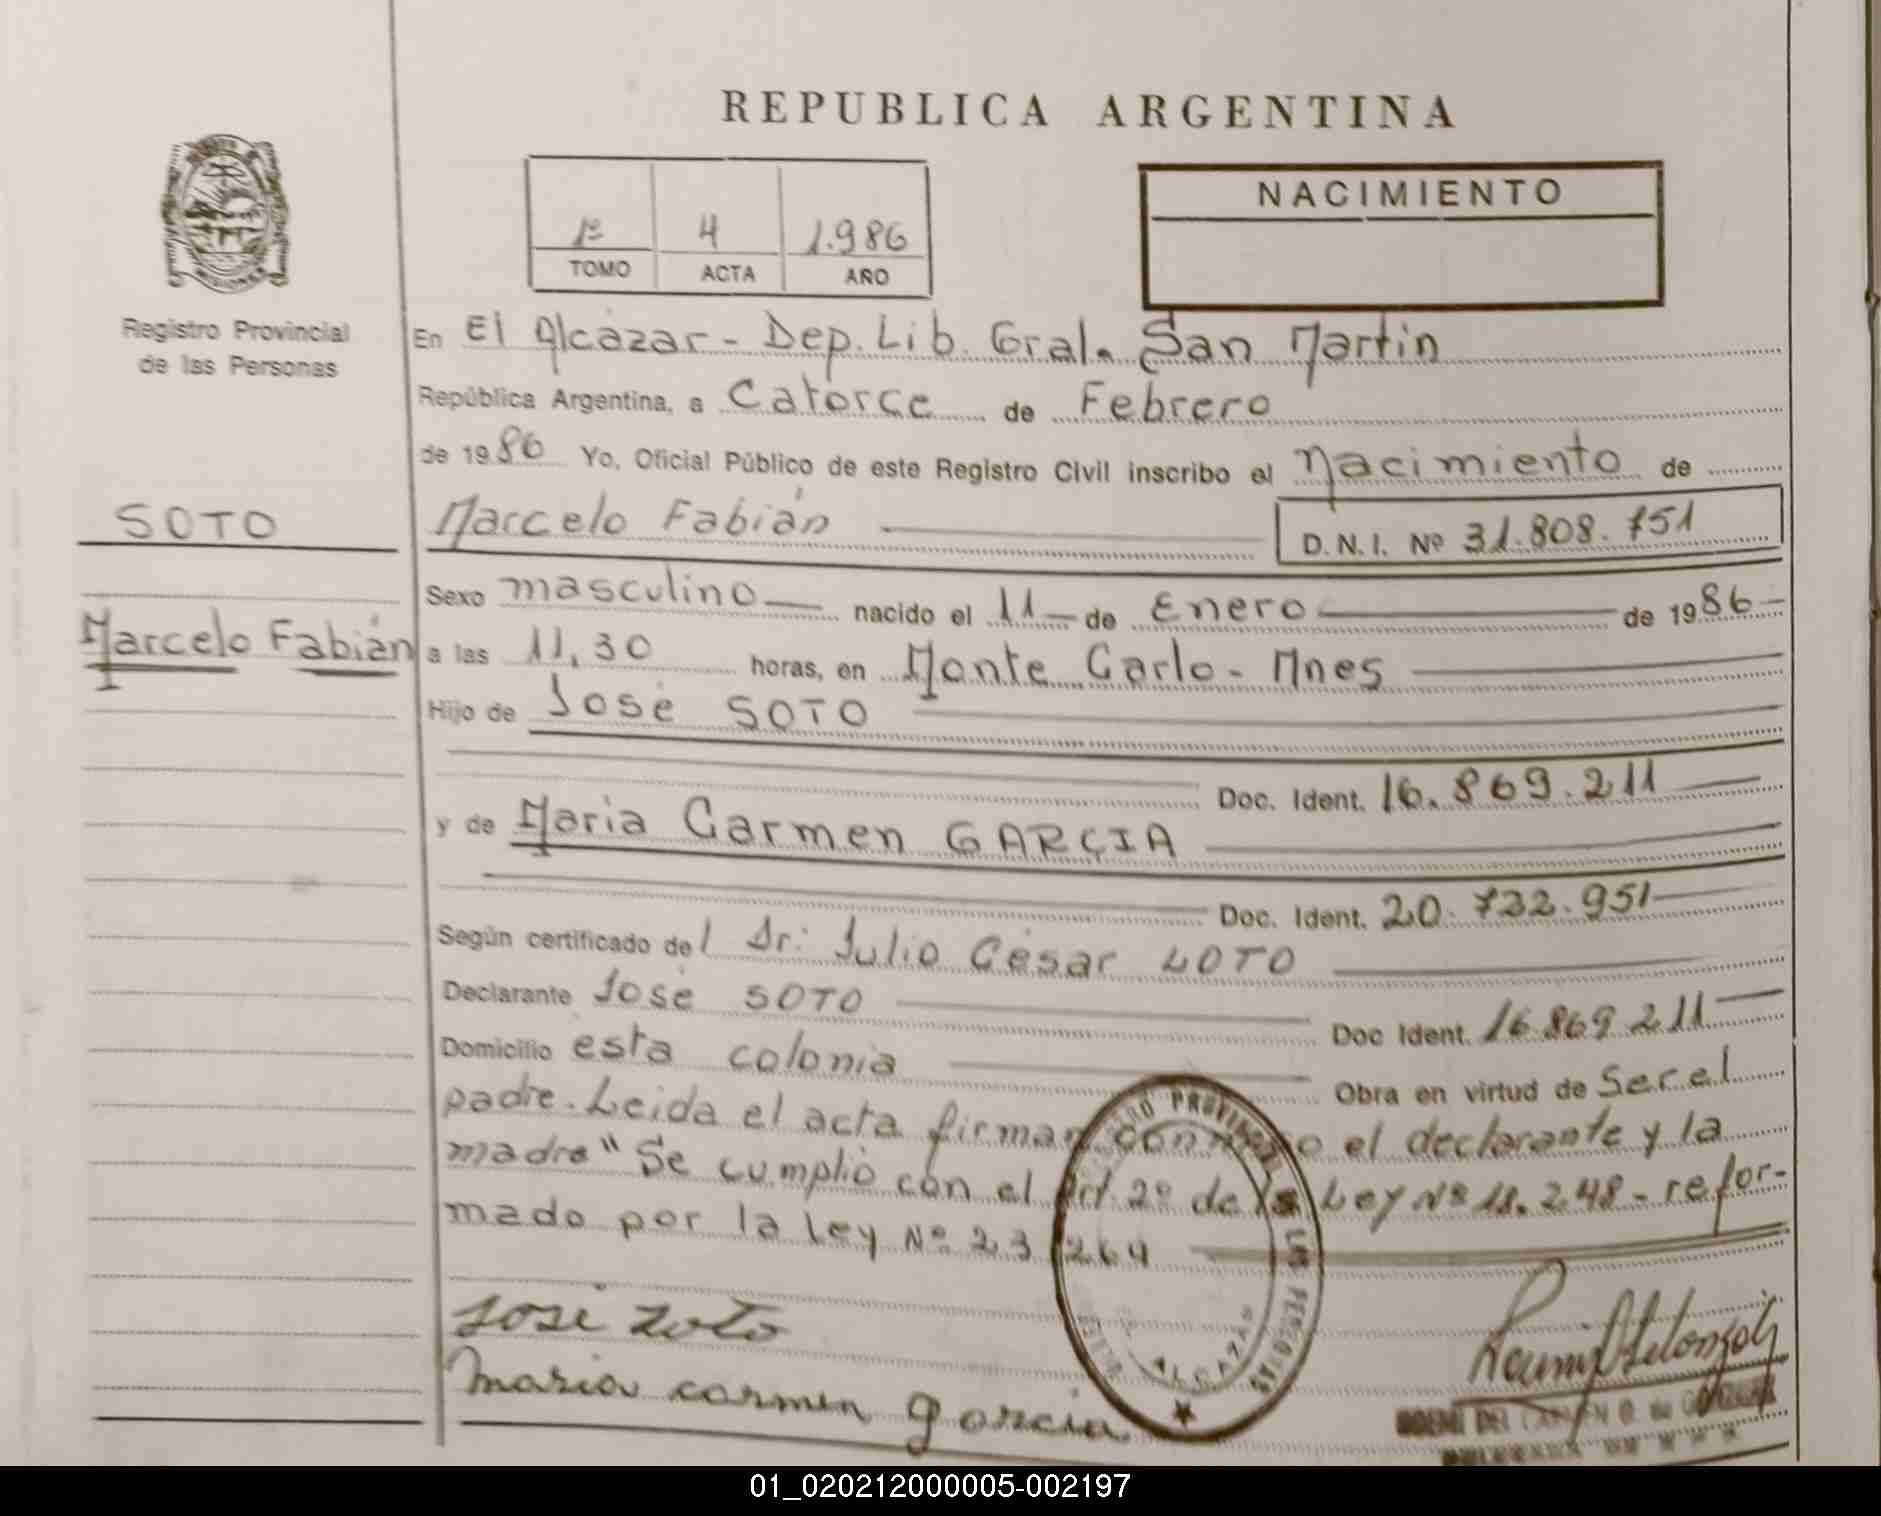 REPUBLICA ARGENTINA
1º 4 1.986
TOMO ACTA AÑO
NACIMIENTO
Registro Provincial
de las Personas
En El Alcázar - Dep. Lib. Gral. San Martín
República Argentina, a Catorce de Febrero
de 1986 Yo, Oficial Público de este Registro Civil inscribo el Nacimiento de
SOTO
Marcelo Fabián
D.N.I. Nº 31.808.751
Marcelo Fabián
Sexo masculino nacido el 11 de Enero de 1986
a las 11,30 horas, en Monte Carlo - Mnes
Hijo de José SOTO
Doc. Ident. 16.869.211
y de Maria Carmen GARCIA
Doc. Ident. 20.732.951
Según certificado del Dr: Julio César LOTO
Declarante José SOTO Doc Ident. 16.869.211
Domicilio esta colonia Obra en virtud de Ser el
padre. Leida el acta firman conmigo el declarante y la
madre "Se cumplió con el Art. 2º de la Ley Nº 18.248 - refor-
mado por la Ley Nº 23.264
José Zoto
maria carmen garcia
01_020212000005-002197